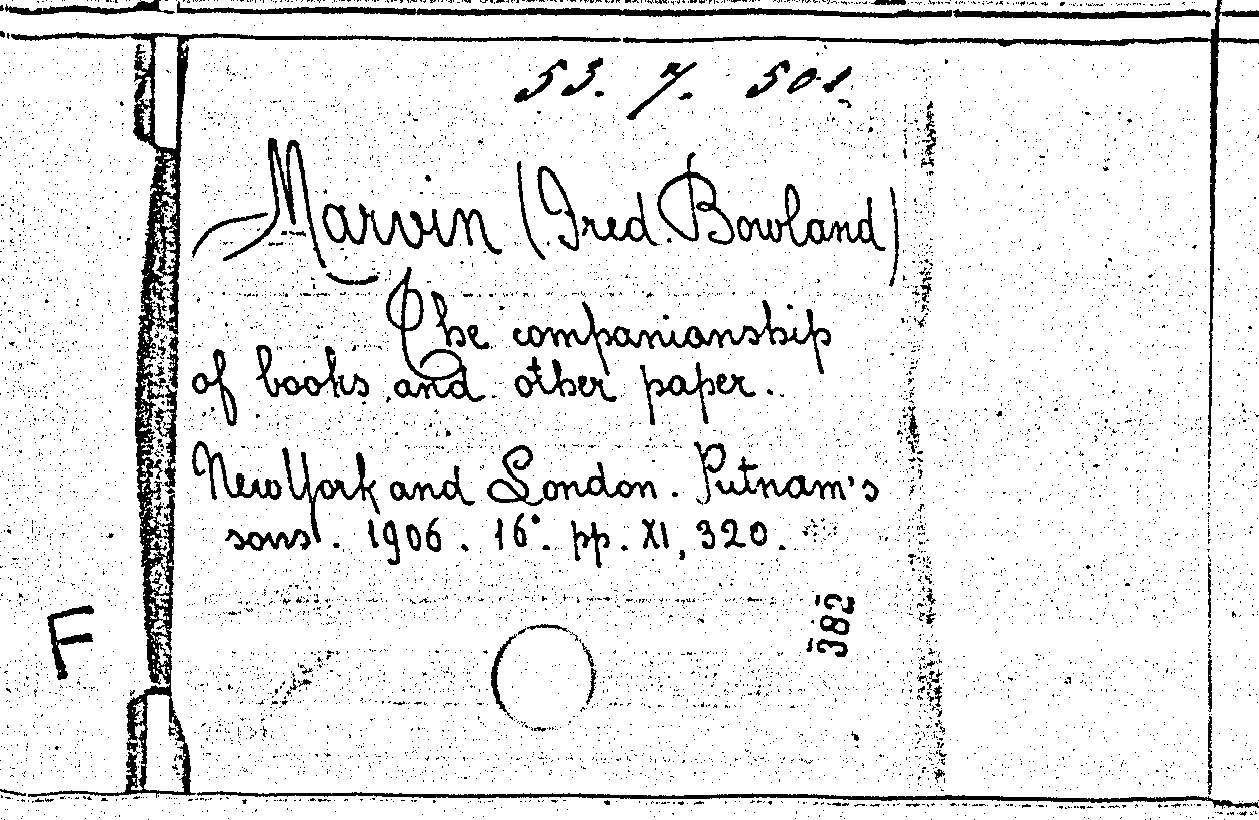 53. 7. 501.
Marvin (Fred. Bowland)
The companionship
of books and other paper.
New York and London. Putnam's
sons. 1906. 16°. pp. XI, 320.
382
F